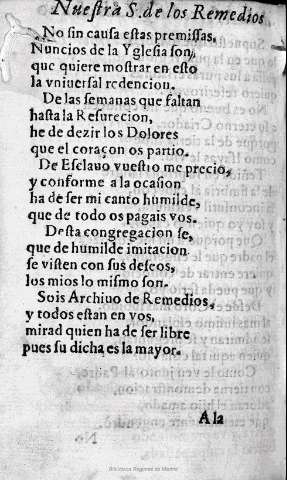 Nueſtra S. de los Remedios
No ſin cauſa eſtas premiſſas,
Nuncios de la Ygleſia ſon,
que quiere moſtrar en eſto
la vniuerſal redencion.
De las ſemanas que faltan
haſta la Reſurecion,
he de dezir los Dolores
que el coraçon os partio.
De Eſclauo vueſtro me precio,
y conforme a la ocaſion
ha de ſer mi canto humilde,
que de todo os pagais vos.
Deſta congregacion ſe,
que de humilde imitacion
ſe viſten con ſus deſeos,
los mios lo miſmo ſon.
Sois Archiuo de Remedios,
y todos eſtan en vos,
mirad quien ha de ſer libre
pues ſu dicha es la mayor.
A la
Biblioteca Regional de Madrid